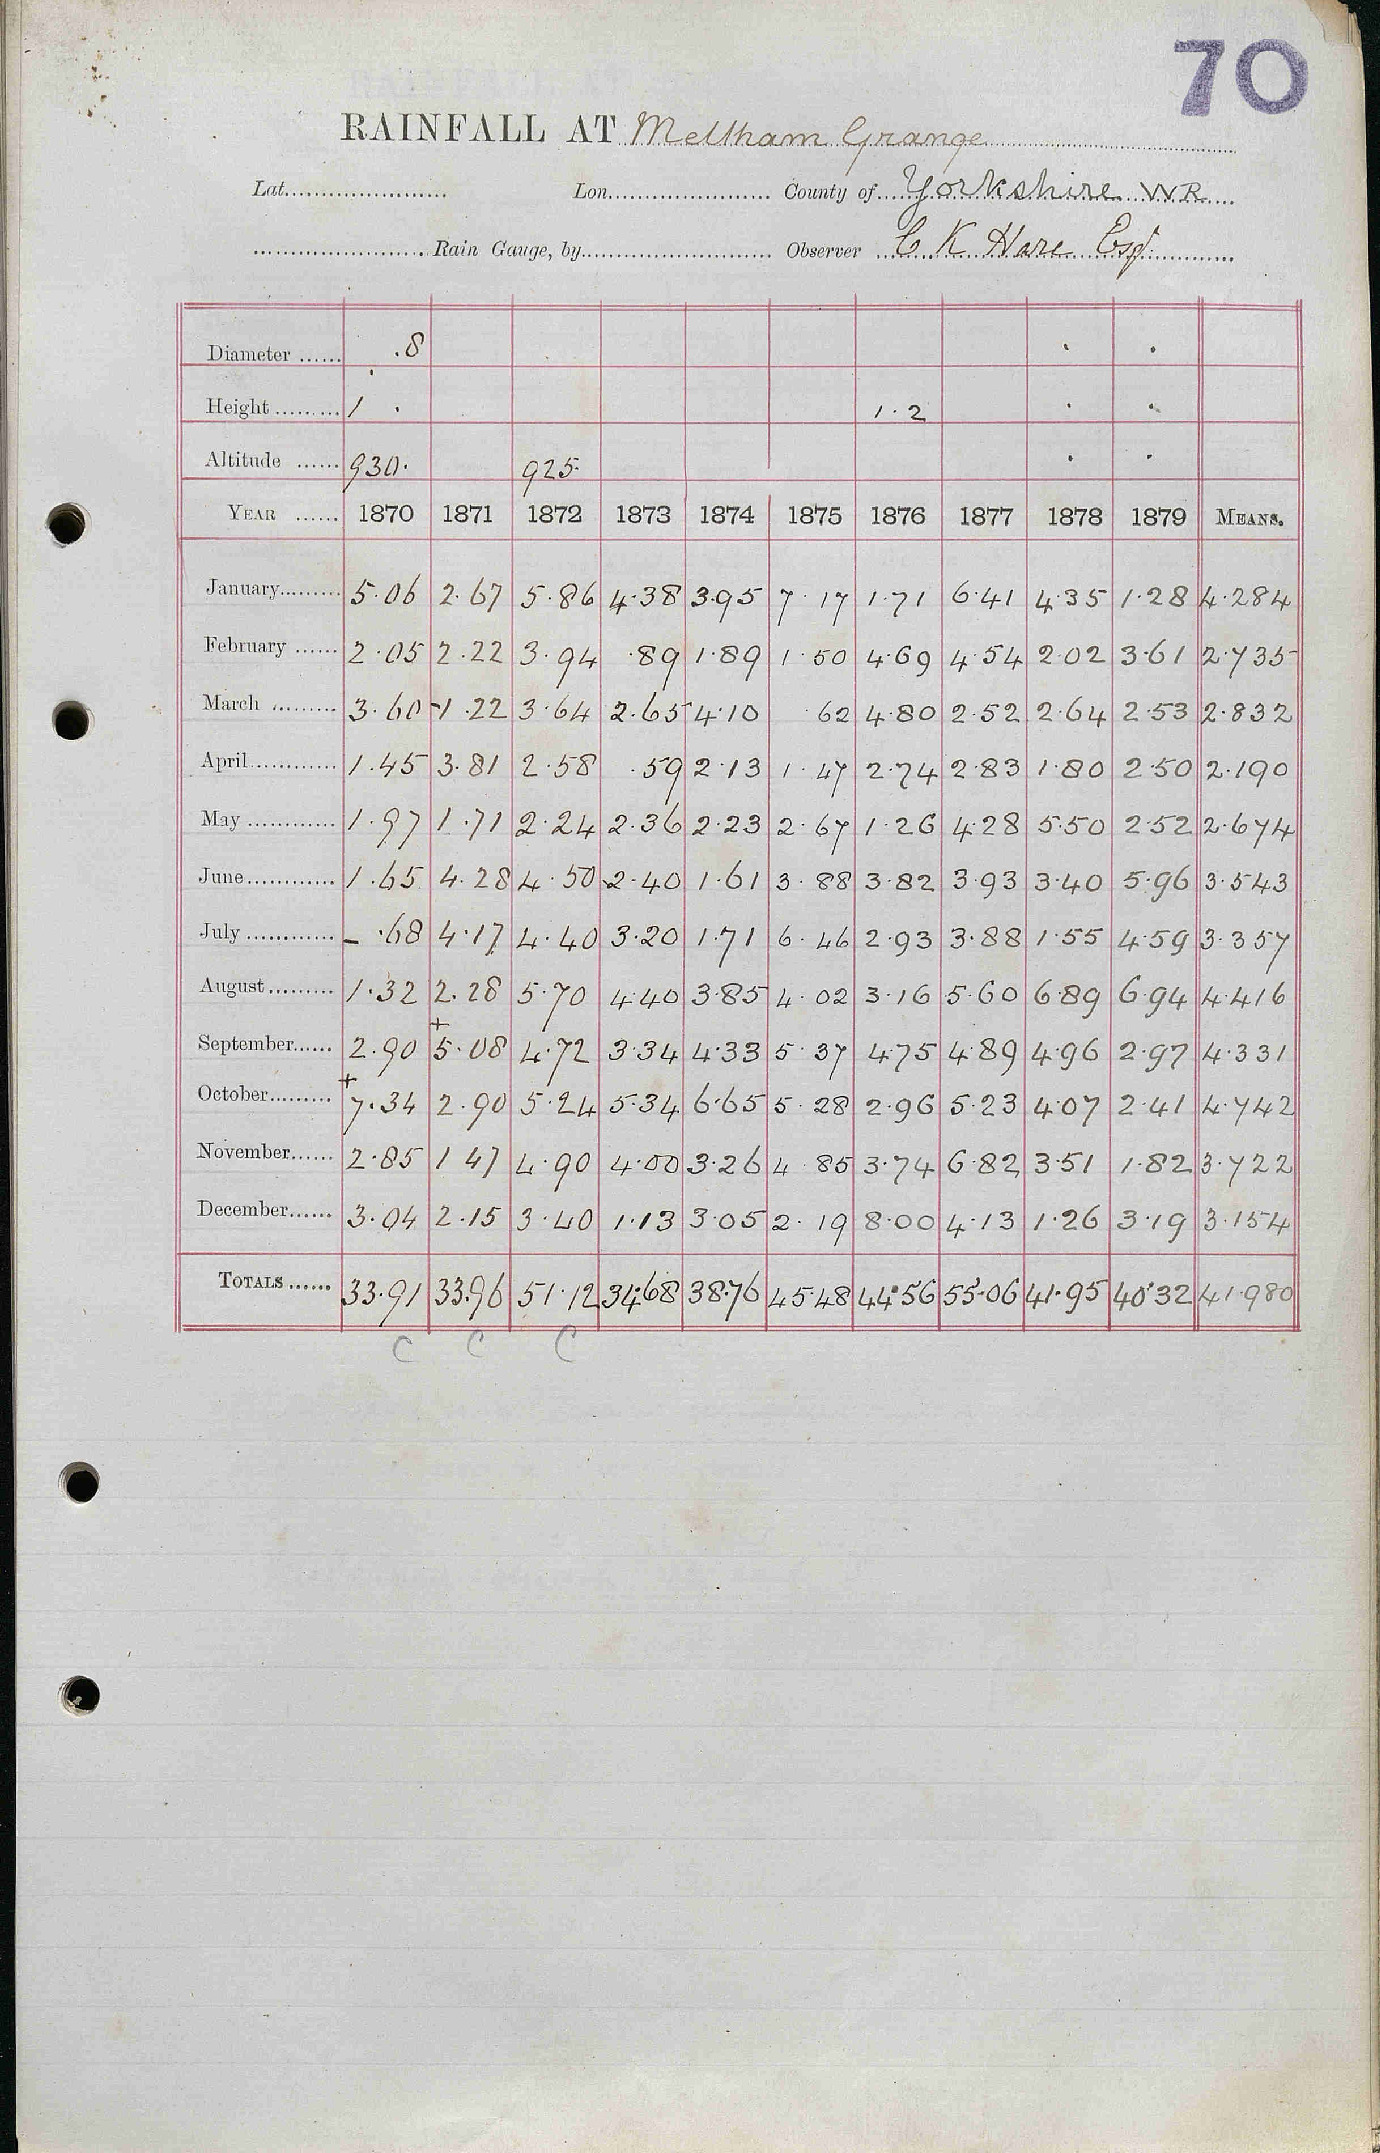 70
RAINFALL AT Meltham Grange
Lat. Lon. County of Yorkshire WR
Rain Gauge, by Observer C K Hare Esqr.
Diameter ...... .8
Height ......... 1 . 1.2
Altitude ...... 930. 925.
YEAR ...... 1870 1871 1872 1873 1874 1875 1876 1877 1878 1879 MEANS.
January......... 5.06 2.67 5.86 4.38 3.95 7.17 1.71 6.41 4.35 1.28 4.284
February ...... 2.05 2.22 3.94 .89 1.89 1.50 4.69 4.54 2.02 3.61 2.735
March ......... 3.60 -1.22 3.64 2.65 4.10 62 4.80 2.52 2.64 2.53 2.832
April............ 1.45 3.81 2.58 .59 2.13 1.47 2.74 2.83 1.80 2.50 2.190
May ............ 1.97 1.71 2.24 2.36 2.23 2.67 1.26 4.28 5.50 2.52 2.674
June............ 1.65 4.28 4.50 2.40 1.61 3.88 3.82 3.93 3.40 5.96 3.543
July ............ - .68 4.17 4.40 3.20 1.71 6.46 2.93 3.88 1.55 4.59 3.357
August......... 1.32 2.28 5.70 4.40 3.85 4.02 3.16 5.60 6.89 6.94 4.416
September...... 2.90 +5.08 4.72 3.34 4.33 5.37 4.75 4.89 4.96 2.97 4.331
October......... +7.34 2.90 5.24 5.34 6.65 5.28 2.96 5.23 4.07 2.41 4.742
November...... 2.85 1 47 4.90 4.00 3.26 4 85 3.74 6.82 3.51 1.82 3.722
December...... 3.04 2.15 3.40 1.13 3.05 2.19 8.00 4.13 1.26 3.19 3.154
TOTALS ...... 33.91 33.96 51.12 34.68 38.76 45.48 44.56 55.06 41.95 40.32 41.980
C C C